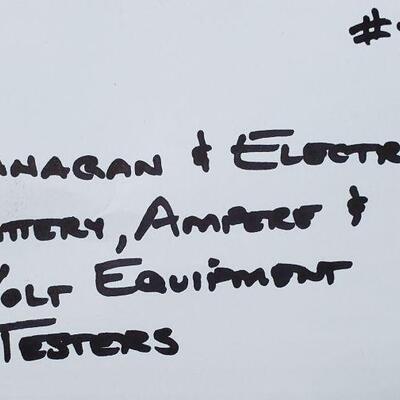 #
ANAGAN & ELECTR
TTERY, AMPERE &
VOLT EQUIPMENT
TESTERS